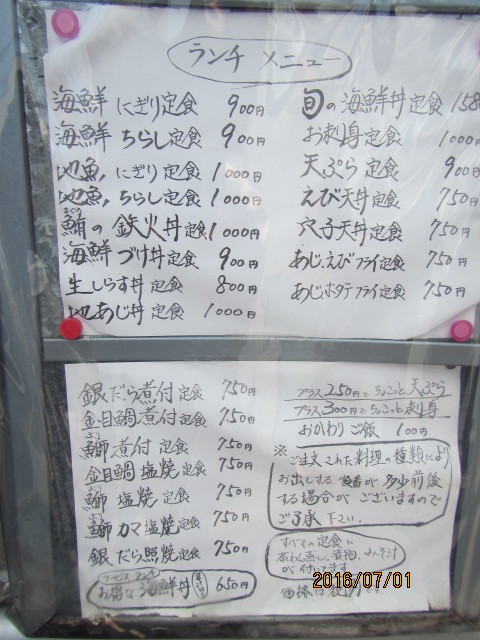 ランチ メニュー
海鮮 にぎり定食 900円
海鮮 ちらし定食 900円
地魚 にぎり定食 1000円
地魚 ちらし定食 1000円
鮪の 鉄火丼定食 1000円
海鮮 づけ丼 定食 900円
生しらす丼 定食 800円
地あじ丼 定食 1000円
旬の海鮮丼定食 158
お刺身定食 1000円
天ぷら定食 900円
えび天丼定食 750円
穴子天丼定食 750円
あじ.えびフライ定食 750円
あじ.ホタテフライ定食 750円
銀だら煮付定食 750円
金目鯛煮付定食 750円
鰤煮付 定食 750円
金目鯛 塩焼定食 750円
鰤 塩焼 定食 750円
鰤カマ塩焼定食 750円
銀だら照焼定食 750円
お得な海鮮丼 650円
プラス250円でちょこっと天ぷら
プラス300円でちょこっと刺身
おかわりご飯 100円
※ご注文された料理の種類により
お出しする順番が多少前後
する場合がございますので
ご了承 下さい.
すべての定食に
茶わん蒸し、漬物、みそ汁
が付いてます
価格は税
2016/07/01